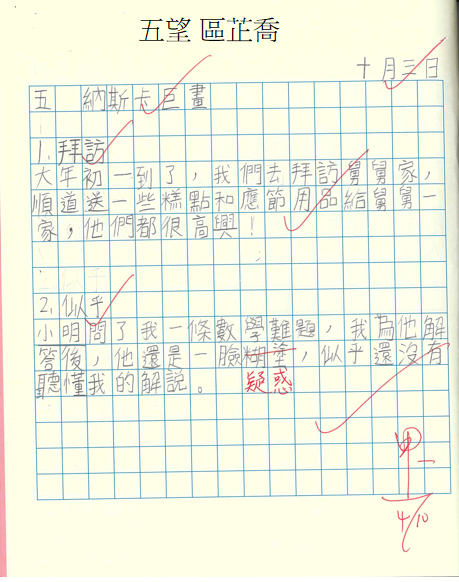 五望 區芷喬
十月三日
五 納斯卡巨畫
1. 拜訪
大年初一到了，我們去拜訪舅舅家，
順道送一些糕點和應節用品給舅舅一
家，他們都很高興！
2. 似乎
小明問了我一條數學難題，我為他解
答後，他還是一臉糊塗，似乎還沒有
聽懂我的解説。 疑惑
甲一
4/10